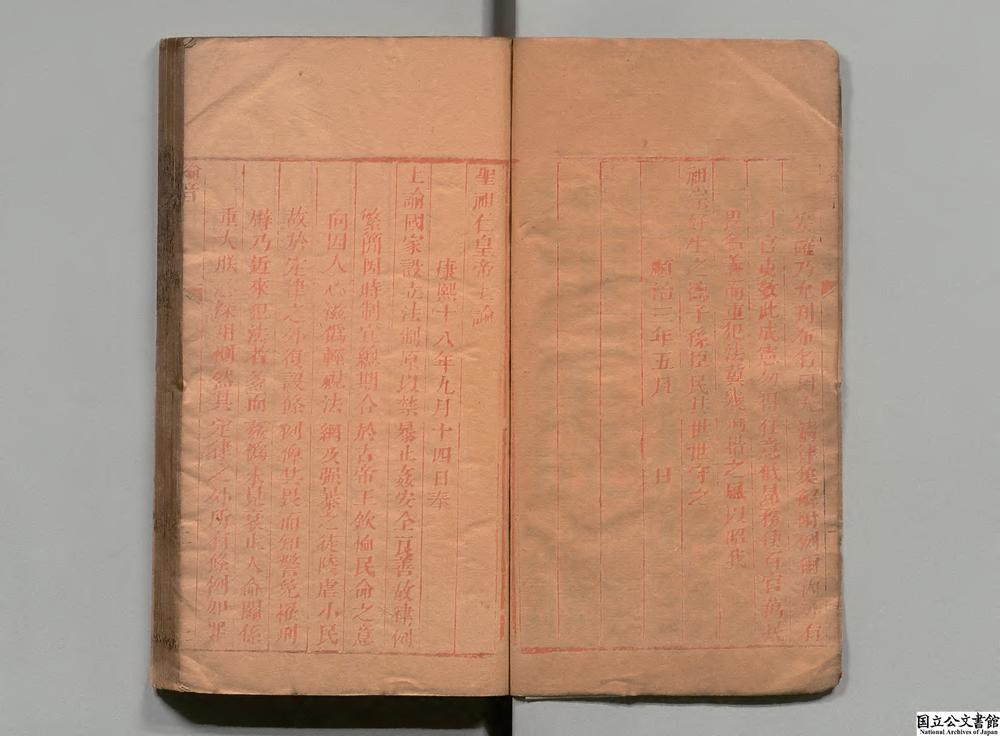 妥確乃允刊布名曰大清律集解附例爾內外有
司官吏敦此成憲勿得任意低昂務使百官萬民
畏名義而重犯法冀幾刑措之風以昭我
祖宗好生之德子孫臣民其世世守之
順治三年五月 日
聖祖仁皇帝上諭
康熙十八年九月十四日奉
上諭國家設立法制原以禁暴止姦安全良善故律例
繁簡因時制宜總期合於古帝王欽恤民命之意
向因人心滋僞輕視法網及強暴之徒陵虐小民
故於定律之外復設條例俾其畏而知警免罹刑
辟乃近來犯法者多而姦僞未見衰止人命關係
重大朕 深用惻然其定律之外所有條例如罪
諭旨
国立公文書館
National Archives of Japan